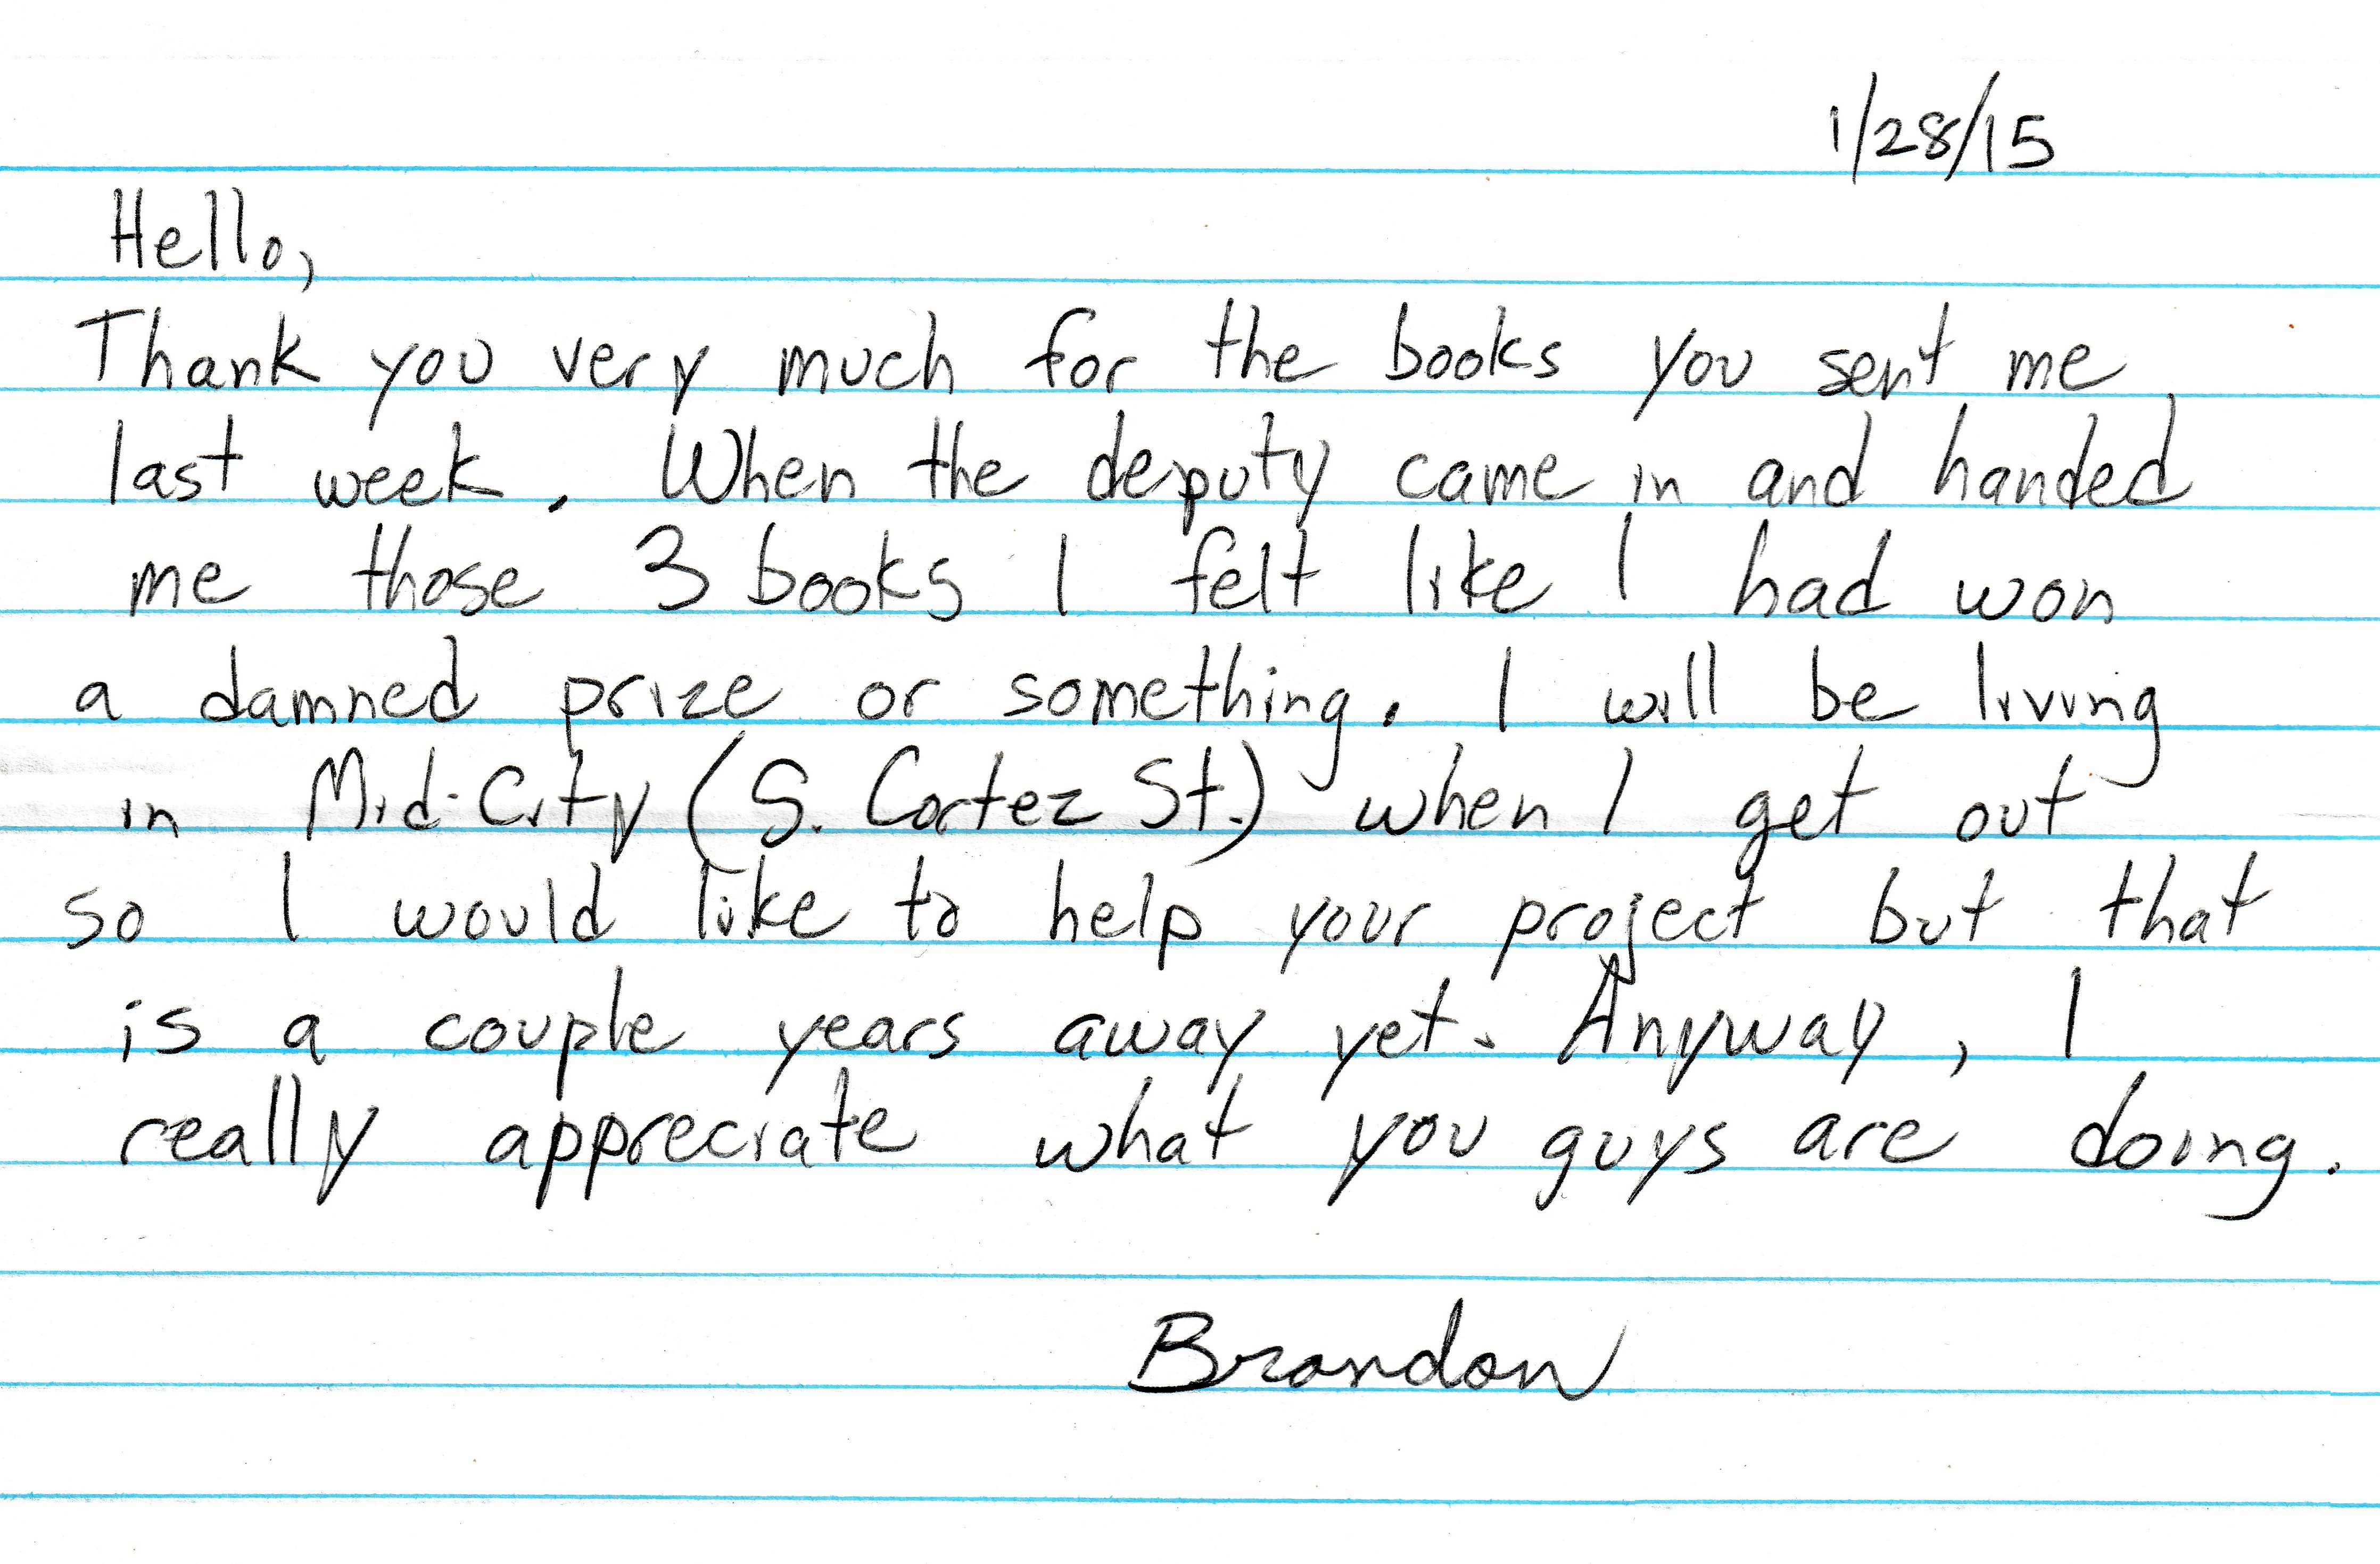 1/28/15
Hello,
Thank you very much for the books you sent me
last week. When the deputy came in and handed
me those 3 books I felt like I had won
a damned prize or something. I will be living
in Mid-City (S. Cortez St.) when I get out
so I would like to help your project but that
is a couple years away yet. Anyway, I
really appreciate what you guys are doing.
Brandon